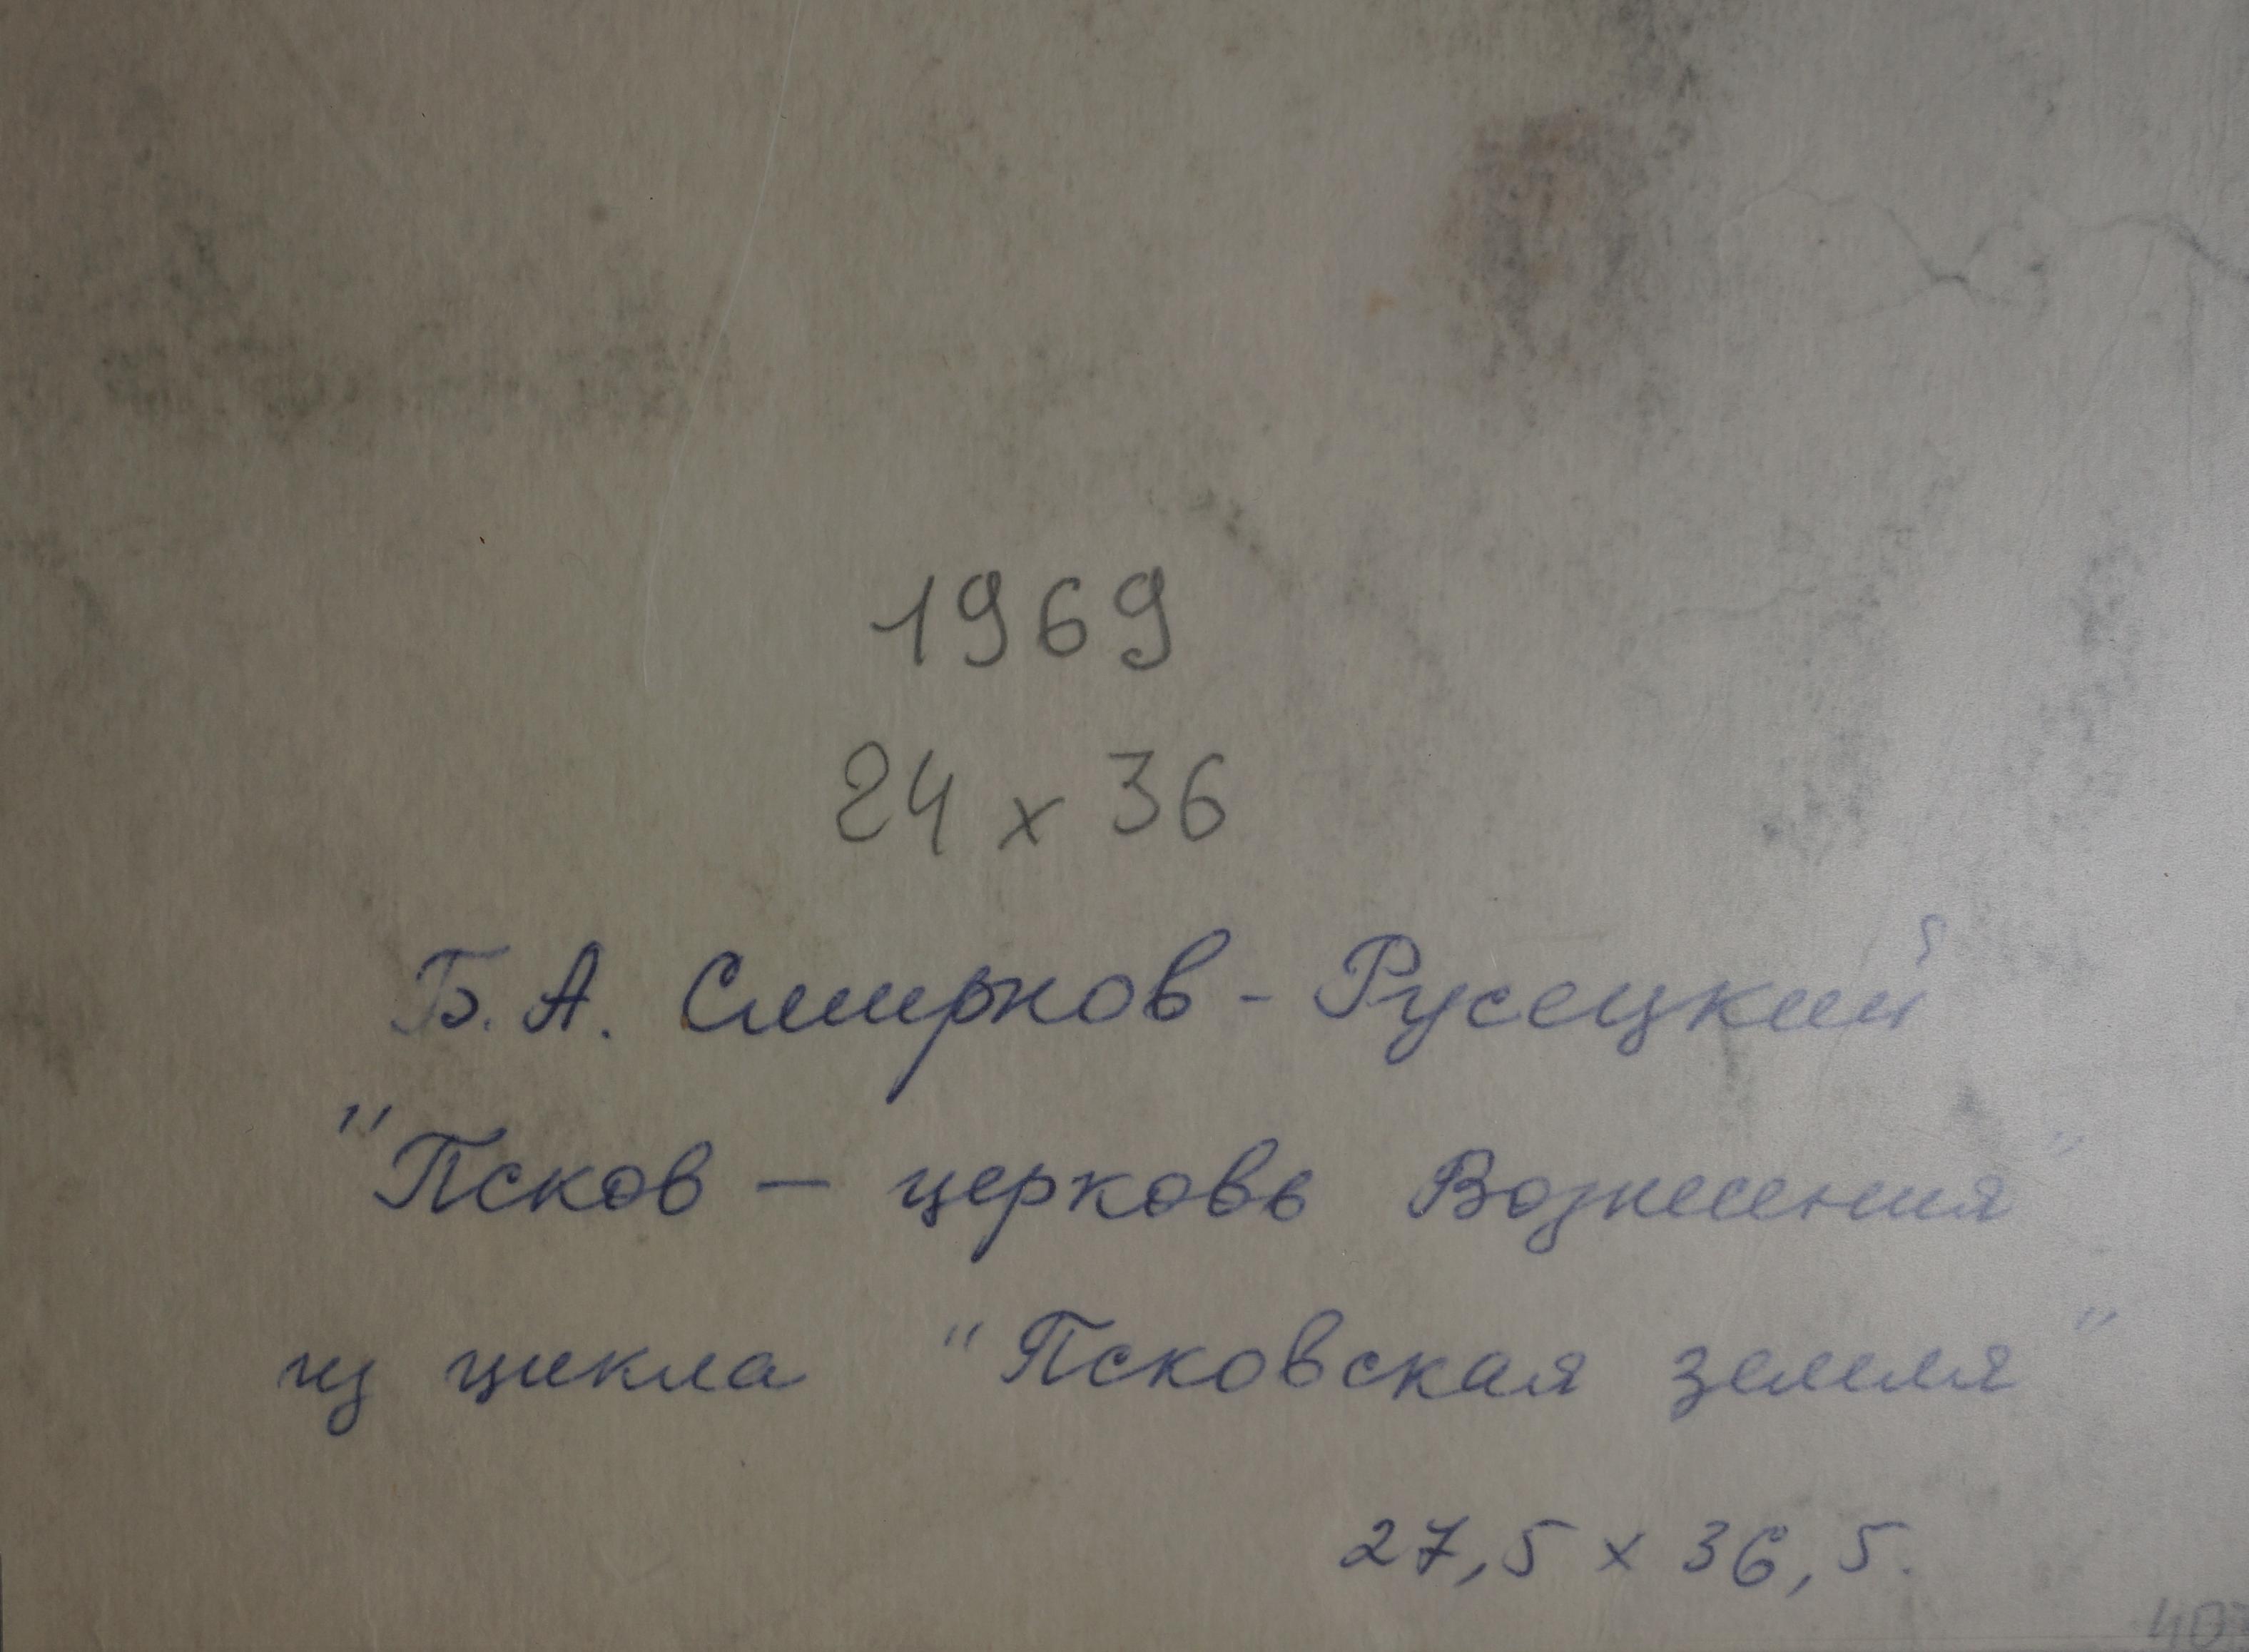 1969
24 x 36
Б. А. Смирнов - Русецкий
"Псков — церковь Вознесения"
из цикла "Псковская земля"
27,5 x 36,5.